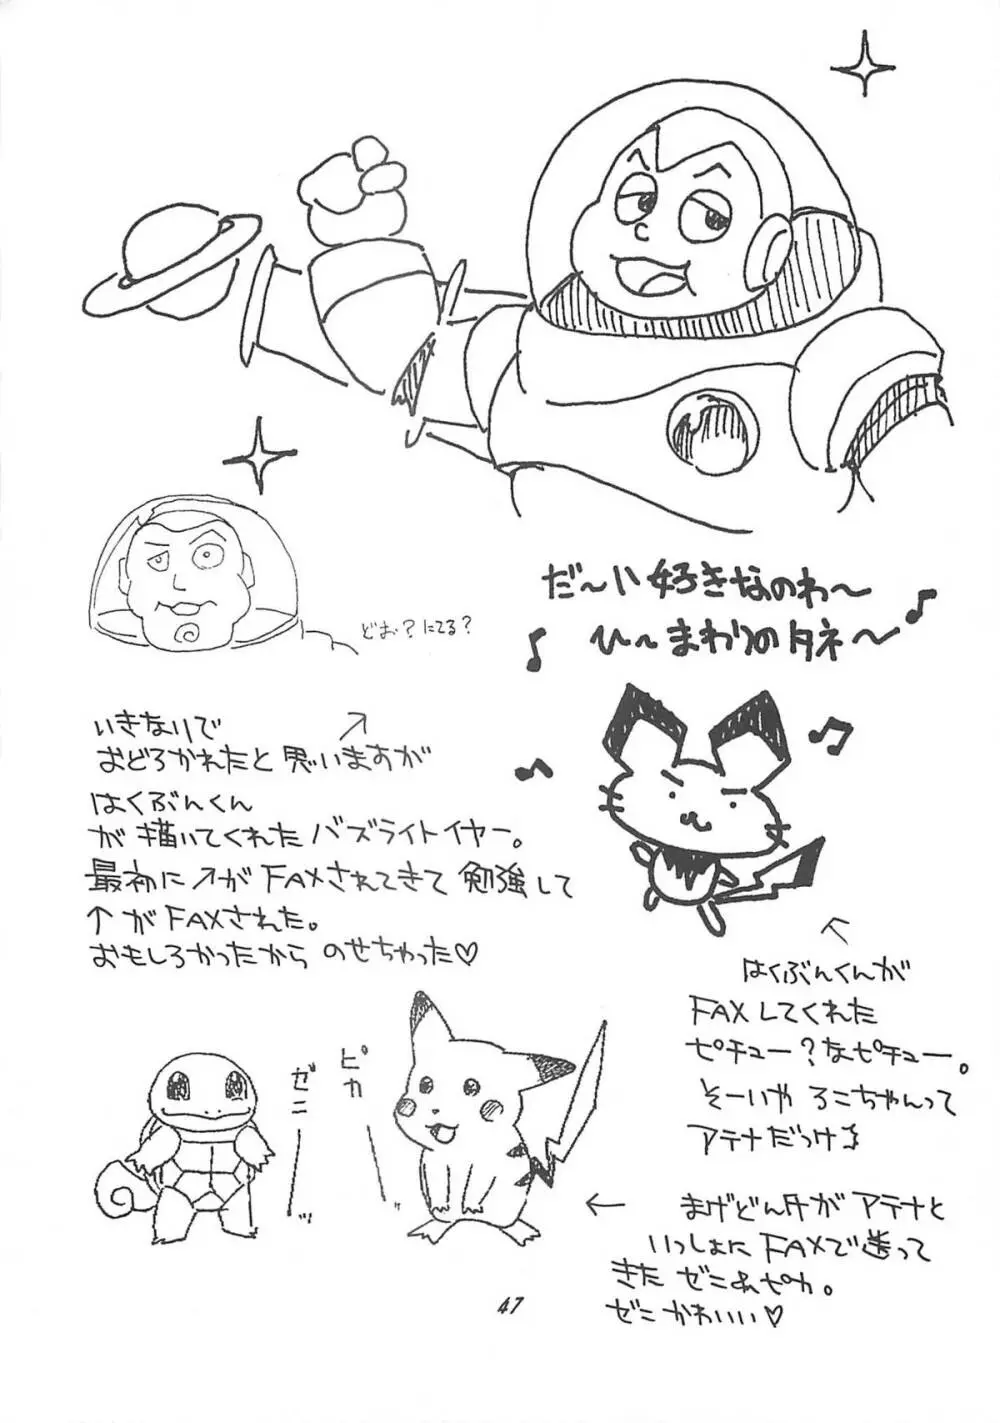 だ〜い好きなのわ〜
ひ〜まわりのタネ〜
どお?にてる?
いきなりで
おどろかれたと思いますが
はくぶんくん
が描いてくれたバズライトイヤー。
最初に↗がFAXされてきて勉強して
↑がFAXされた。
おもしろかったから のせちゃった♡
はくぶんくんが
FAXしてくれた
ピチュー?なピチュー。
そーいや ろこちゃんって
アテナだっけ
ゼニーー!!
ピカーー!!
← まげどん斤がアテナと
いっしょにFAXで送って
きた ゼニ&ピカ。
ゼニかわいい♡
47